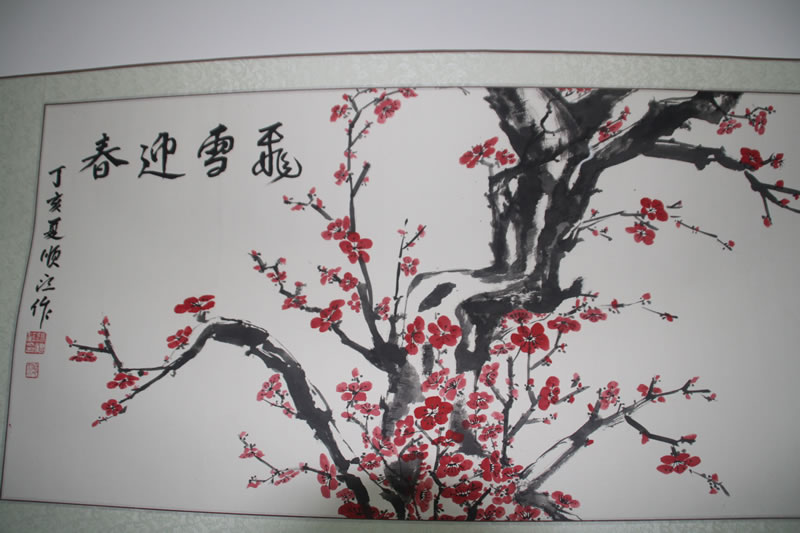 飛雪迎春
丁亥夏顺江作